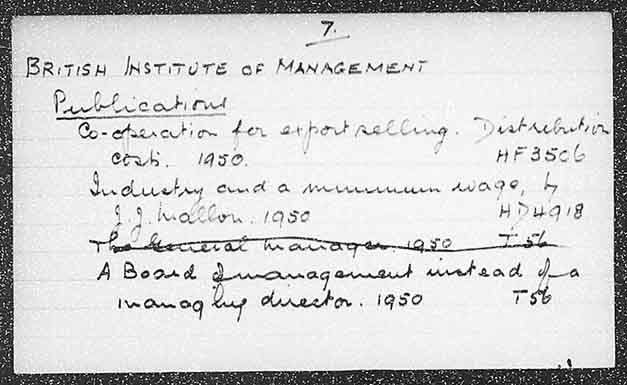 7.
BRITISH INSTITUTE OF MANAGEMENT
Publications
Co-operation for export selling. Distribution
costs. 1950. HF3506
Industry and a minimum wage, by
J.J. Mallon. 1950 HD4918
The General manager. 1950 T56
A Board of management instead of a
managing director. 1950 T56